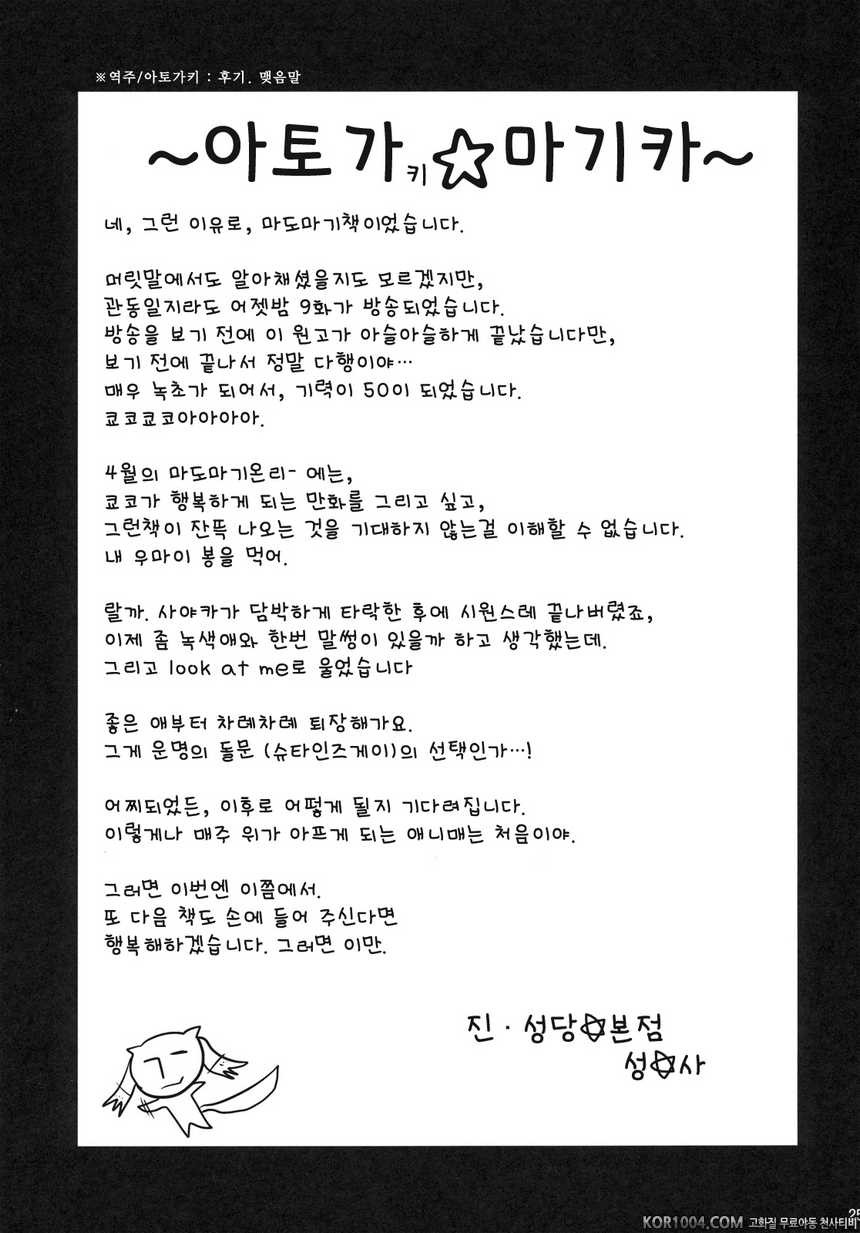 ※역주/아토가키 : 후기. 맺음말
~아토가키☆마기카~
네, 그런 이유로, 마도마기책이었습니다.
머릿말에서도 알아채셨을지도 모르겠지만,
관동일지라도 어젯밤 9화가 방송되었습니다.
방송을 보기 전에 이 원고가 아슬아슬하게 끝났습니다만,
보기 전에 끝나서 정말 다행이야…
매우 녹초가 되어서, 기력이 50이 되었습니다.
쿄코쿄코아아아아아.
4월의 마도마기온리- 에는,
쿄코가 행복하게 되는 만화를 그리고 싶고,
그런책이 잔뜩 나오는 것을 기대하지 않는걸 이해할 수 없습니다.
내 우마이 봉을 먹어.
랄까. 사야카가 담박하게 타락한 후에 시원스레 끝나버렸죠,
이제 좀 녹색애와 한번 말썽이 있을까 하고 생각했는데.
그리고 look at me로 울었습니다
좋은 애부터 차례차례 퇴장해가요.
그게 운명의 돌문 (슈타인즈게이)의 선택인가…!
어찌되었든, 이후로 어떻게 될지 기다려집니다.
이렇게나 매주 위가 아프게 되는 애니매는 처음이야.
그러면 이번엔 이쯤에서.
또 다음 책도 손에 들어 주신다면
행복해하겠습니다. 그러면 이만.
진 · 성당✡본점
성✡사
25
KOR1004.COM 고화질 무료야동 천사티비